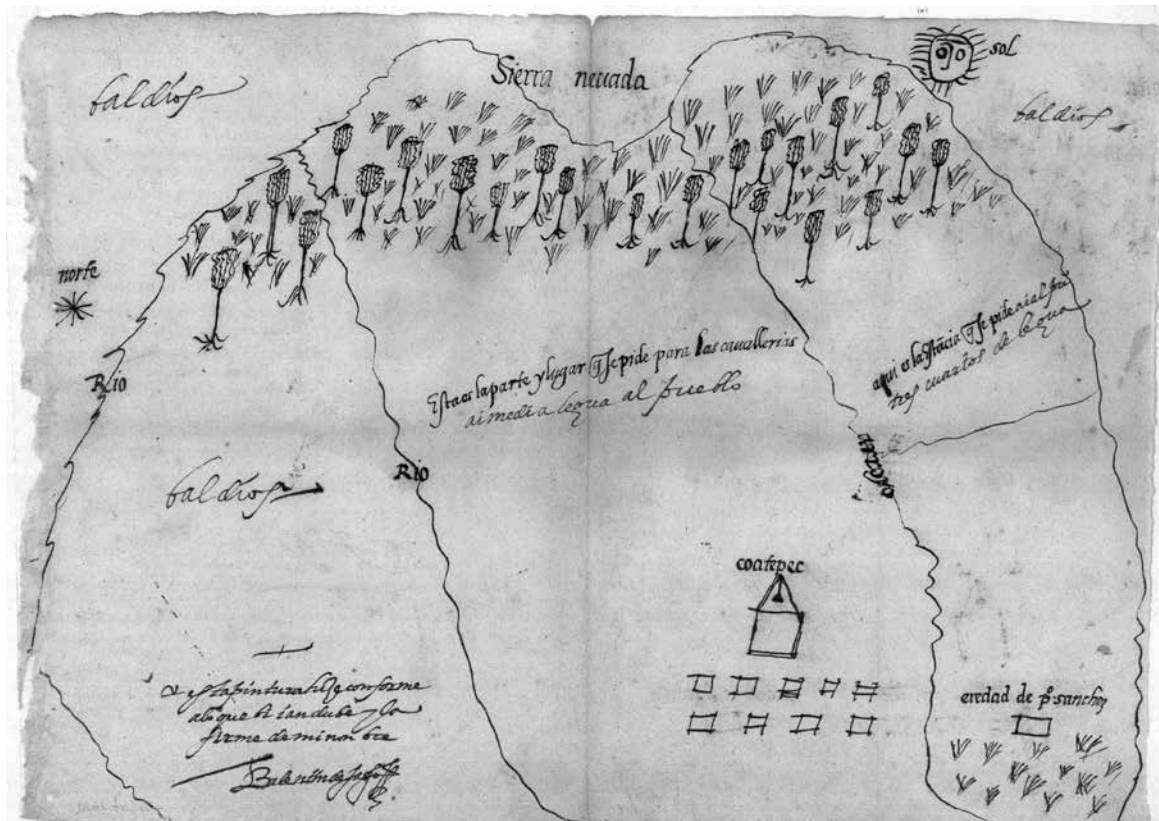 Sierra nevada
sol
baldios
baldios
norte
Rio
Esta es la parte y lugar q̃ se pide para las cavallerias
ai media legua al pueblo
aqui es la estãcia q̃ se pide ai al pu
tres cuartos de legua
Rio
baldios
coatepec
eredad de pº sanchez
esta pintura hize conforme
a lo que bi i andube y lo
firme de mi nonbre